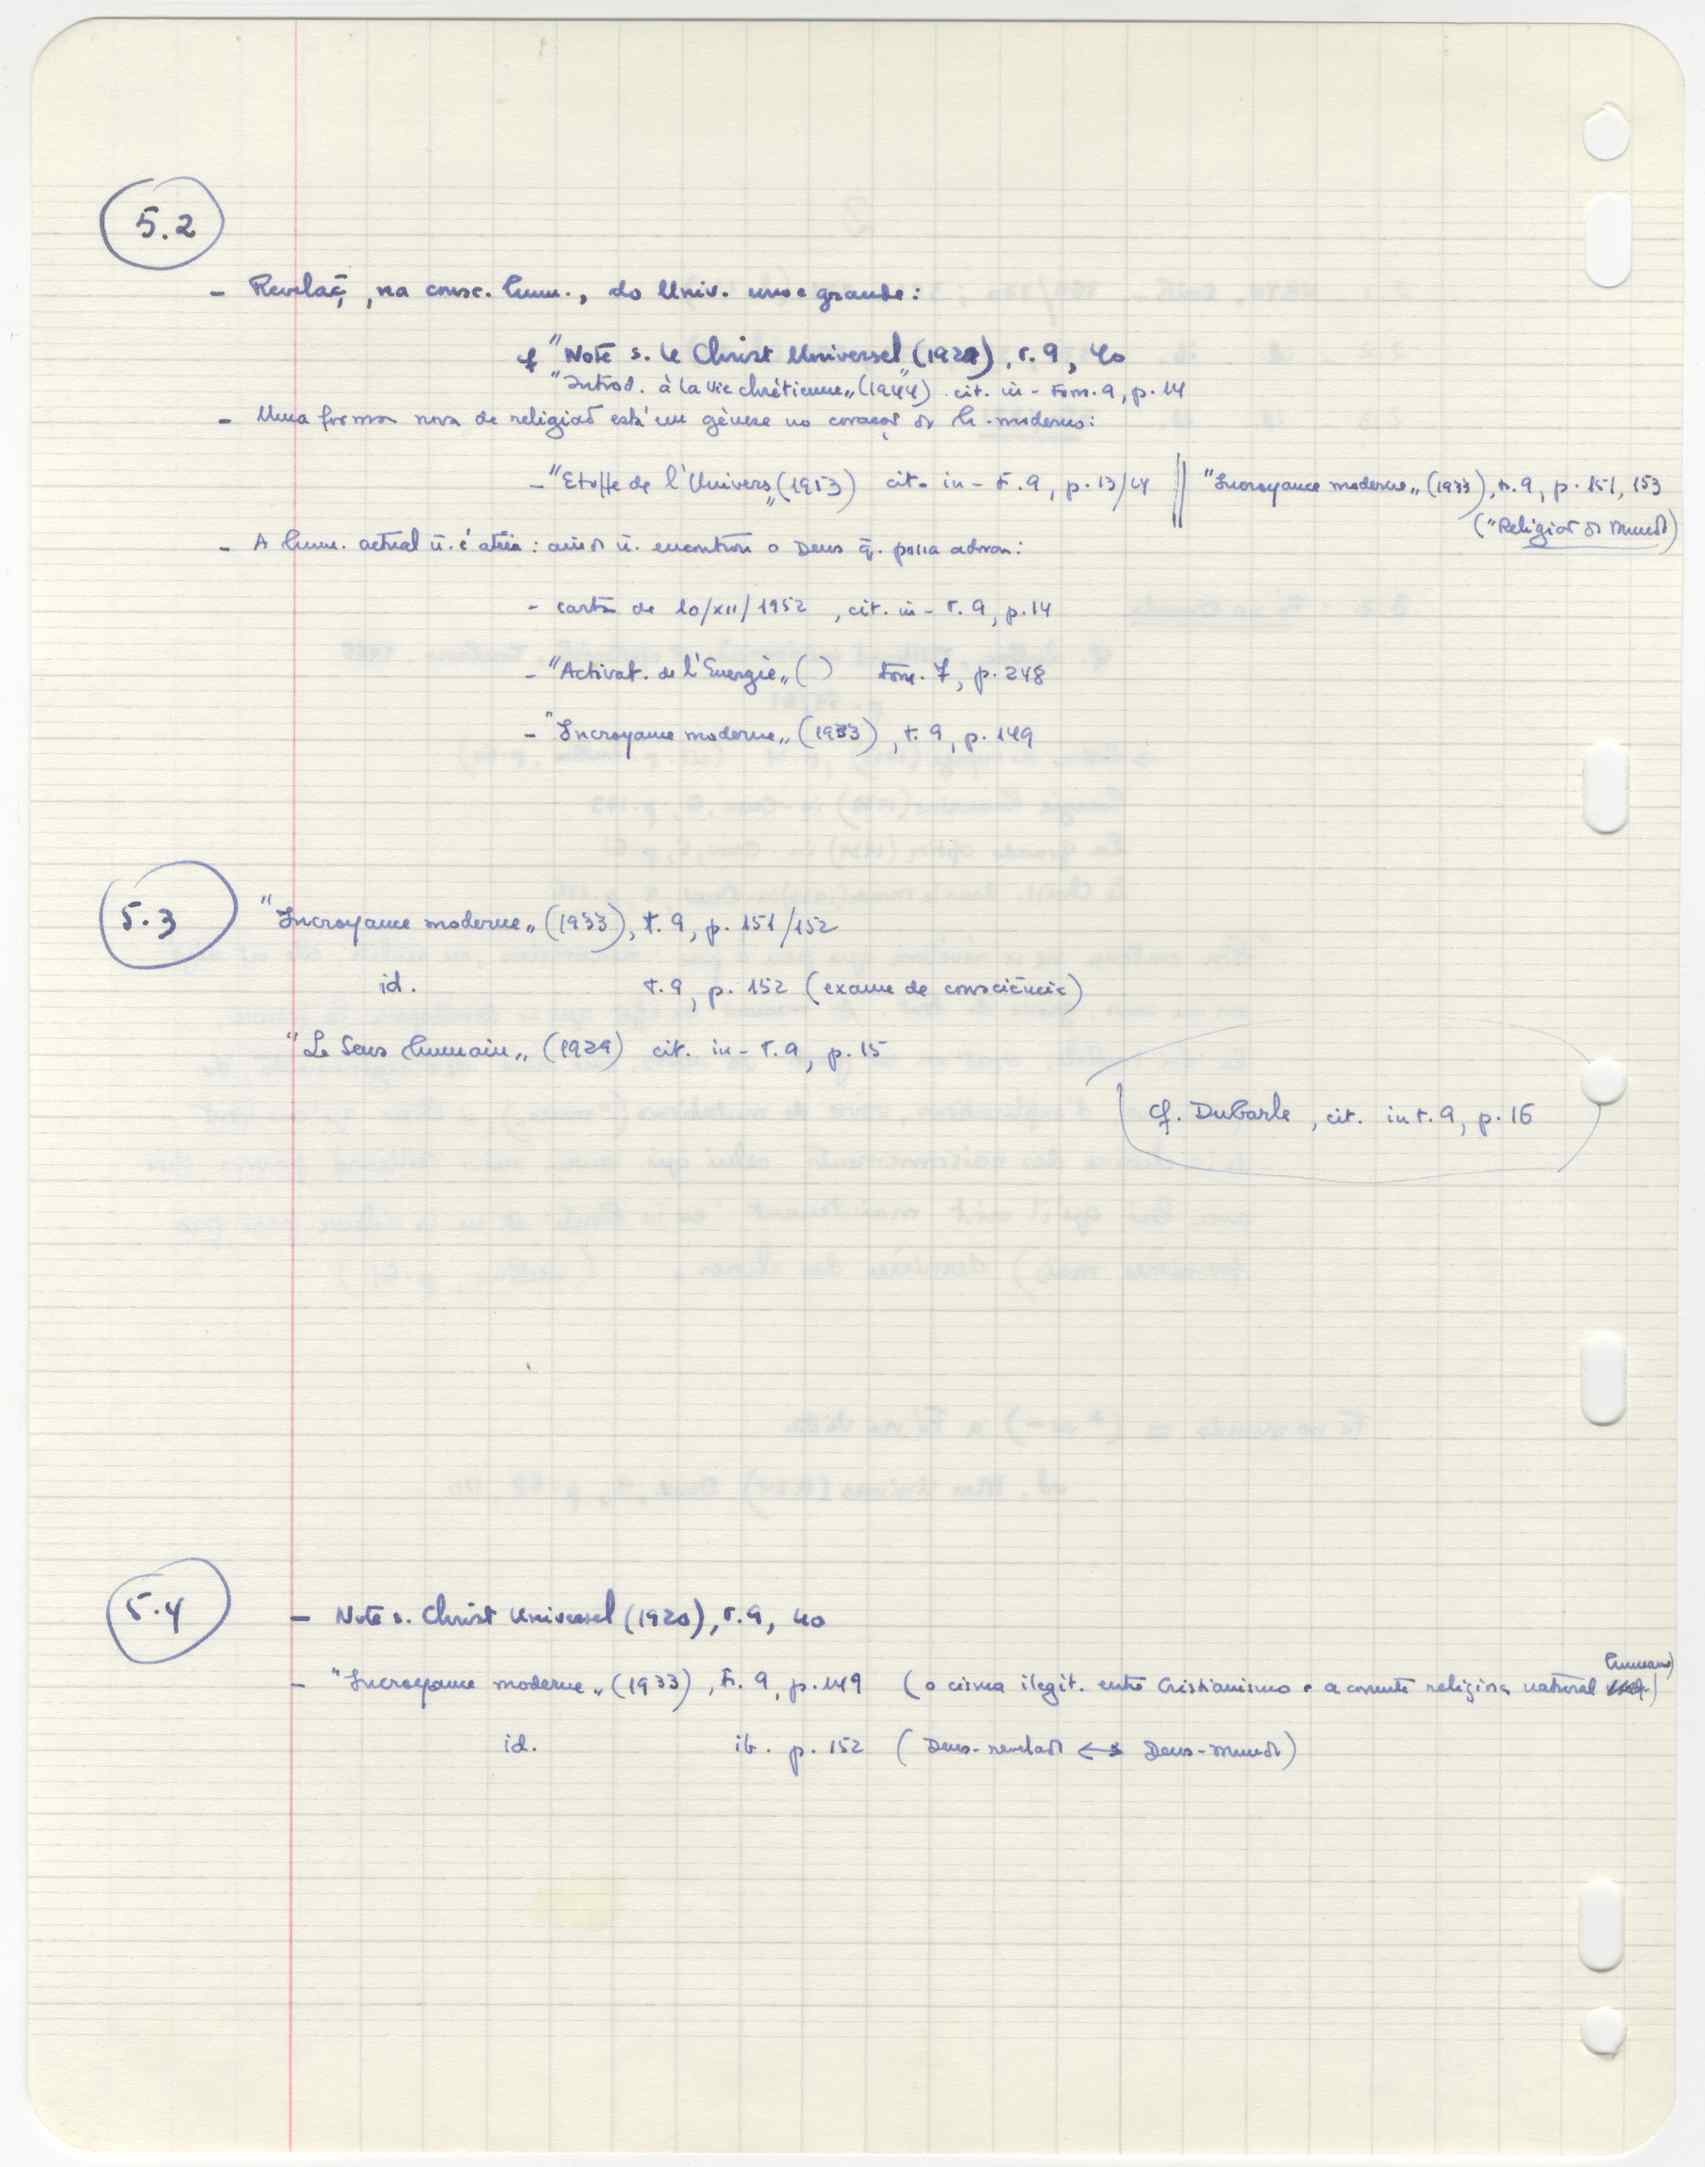 5.2
- Revelaç̃, na consc. hum., do Univ. uno e grande:
cf "Note s. le Christ Universel" (1920), t. 9, 40
"Introd. à la vie chrétienne" (1944) cit. in - tom. 9, p. 14
- Uma forma nova de religião está em génese no coração do h. moderno:
- "Etoffe de l'Univers" (1953) cit. in - t. 9, p. 13/14 || "Incroyance moderne" (1933), t. 9, p. 151, 153
("Religião do Mundo)
- A hum. actual ñ. é ateia: ainda ñ. encontrou o Deus q̃. possa adorar:
- carta de 10/XII/1952, cit. in - t. 9, p. 14
- "Activat. de l'Energie" ( ) tom. 7, p. 248
- "Incroyance moderne" (1933), t. 9, p. 149
5.3
"Incroyance moderne" (1933), t. 9, p. 151/152
id. t. 9, p. 152 (exame de consciência)
"Le Sens humain" (1929) cit. in - t. 9, p. 15
cf. Dubarle, cit. in t. 9, p. 16
5.4
- Note s. Christ Universel (1920), t. 9, 40
humano)
- "Incroyance moderne" (1933), t. 9, p. 149 (o cisma ilegit. entre Cristianismo e a corrente religiosa natural
id. ib. p. 152 (Deus-revelado <-> Deus-mundo)